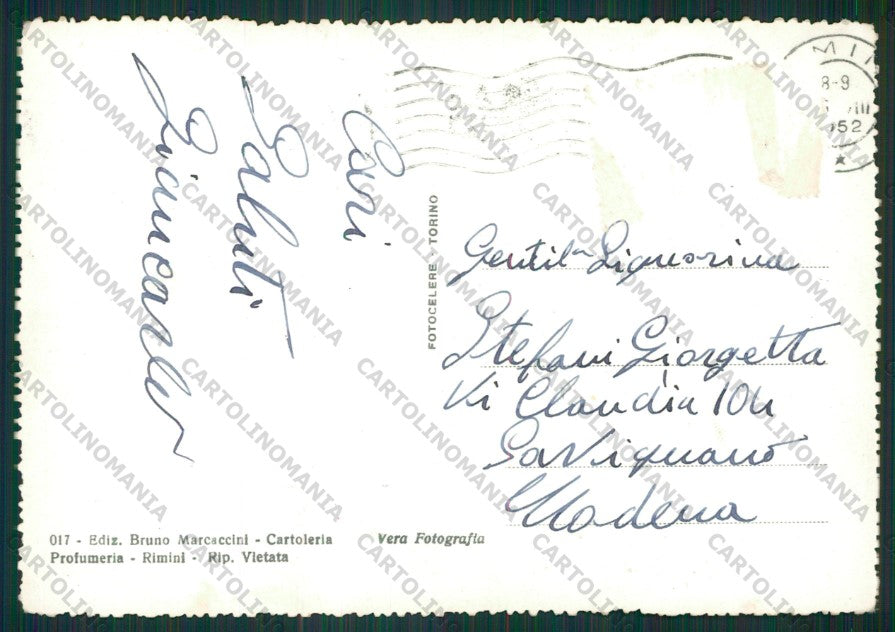 Cari
Saluti
Giancarlo
MI
8-9
III
952
FOTOCELERE - TORINO
Gentil.ma Signorina
Stefani Giorgetta
Vi Claudia 104
Savignano
Modena
017 - Ediz. Bruno Marcaccini - Cartoleria
Profumeria - Rimini - Rip. Vietata
Vera Fotografia
CARTOLINOMANIA